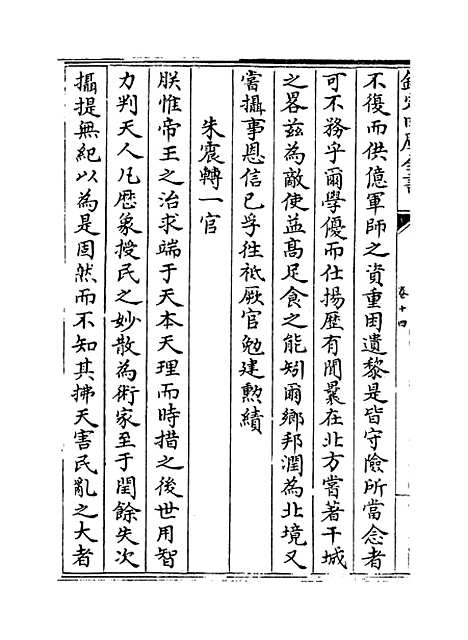 欽定四庫全書
卷十四
不復而供億軍師之資重困遺黎是皆守險所當念者
可不務乎爾學優而仕揚歴有聞曩在北方嘗著干城
之畧兹為敵使益髙足食之能矧爾鄉邦濶為北境又
嘗攝事恩信已孚往祗厥官勉建勲績
朱震轉一官
朕惟帝王之治求端于天本天理而時措之後世用智
力判天人凡歴象授民之妙散為術家至于閏餘失次
攝提無紀以為是固然而不知其拂天害民亂之大者